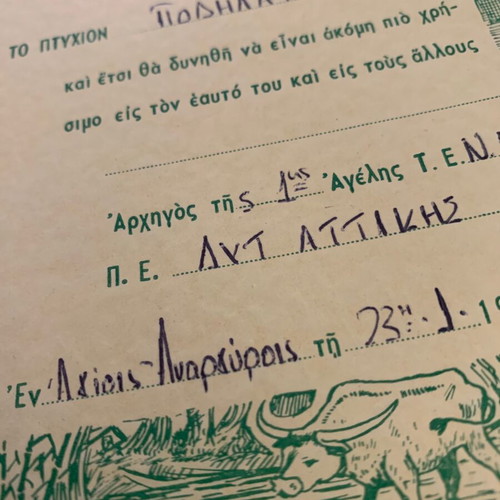 ΤΟ ΠΤΥΧΙΟΝ ΠΟΔΗΛΑ
καὶ ἔτσι θὰ δυνηθῆ νὰ εἶναι ἀκόμη πιὸ χρή-
σιμο εἰς τὸν ἑαυτό του καὶ εἰς τοὺς ἄλλους
Ἀρχηγὸς τῆς 1ης Ἀγέλης Τ. Ε. Ν.
Π. Ε. ΔΥΤ ΑΤΤΙΚΗΣ
Ἐν Ἁγίοις-Αναργύροις τῇ 23η.1. 19